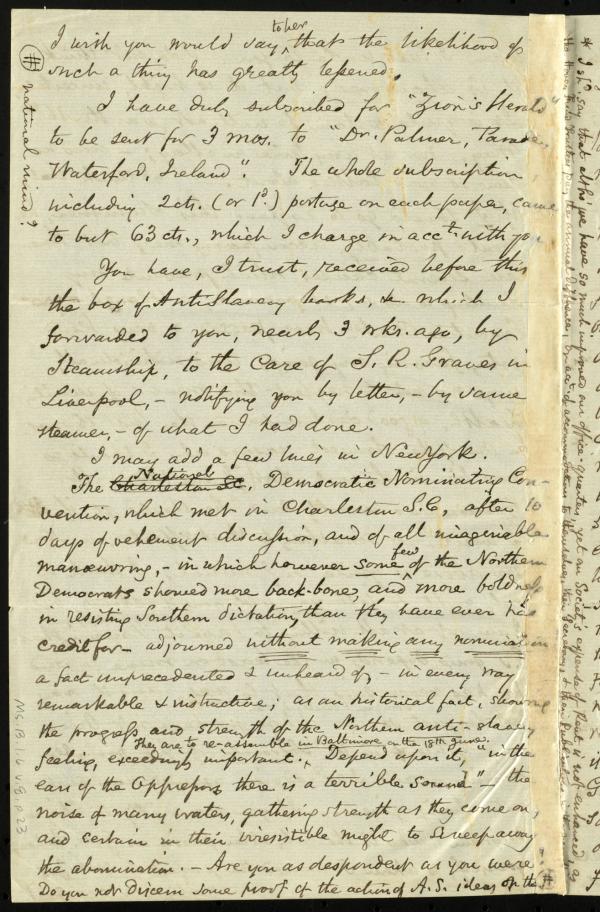 I wish you would say, to her that the likelihood of
such a thing has greatly lessened.
I have duly subscribed for "Zion's Herald"
to be sent for 3 mos. to "Dr. Palmer, Parade,
Waterford, Ireland". The whole subscription,
including 2 cts. (or 1d.) postage on each paper, came
to but 63 cts., which I charge in acct. with you
You have, I trust, received before this
the box of AntiSlavery books, &c which I
forwarded to you, nearly 3 wks. ago, by
Steamship, to the Care of S. R. Graves in
Liverpool, - notifying you by letter, - by same
steamer, - of what I had done.
I may add a few lines in New York.
The Charleston SC. National Democratic Nominating Con-
vention, which met in Charleston S.C., after 10
days of vehement discussion, and of all imaginable
manœuvring, - in which however some few of the Northern
Democrats showed more back-bone, and more boldness
in resisting Southern dictation, than they have ever had
credit for - adjourned without making any nomination
a fact unprecedented & unheard of, - in every way
remarkable & instructive; as an historical fact, showing
the progress and strength of the Northern anti-slavery
feeling, exceedingly important. They are to re-assemble in Baltimore on the 18th June. Depend upon it, "in the
ears of the Oppressors there is a terrible Sound" - the
noise of many waters, gathering strength as they come on,
and certain in their irresistible might to sweep away
the abomination. - Are you as despondent as you were?
Do you not discern some proof of the action of A. S. ideas on the #
# national mind?
* I shd. say that altho' we have so much improved our office-quarters, yet our Society's expense of Rent is not enhanced, as
MS. B.1.6 v.8, p.23